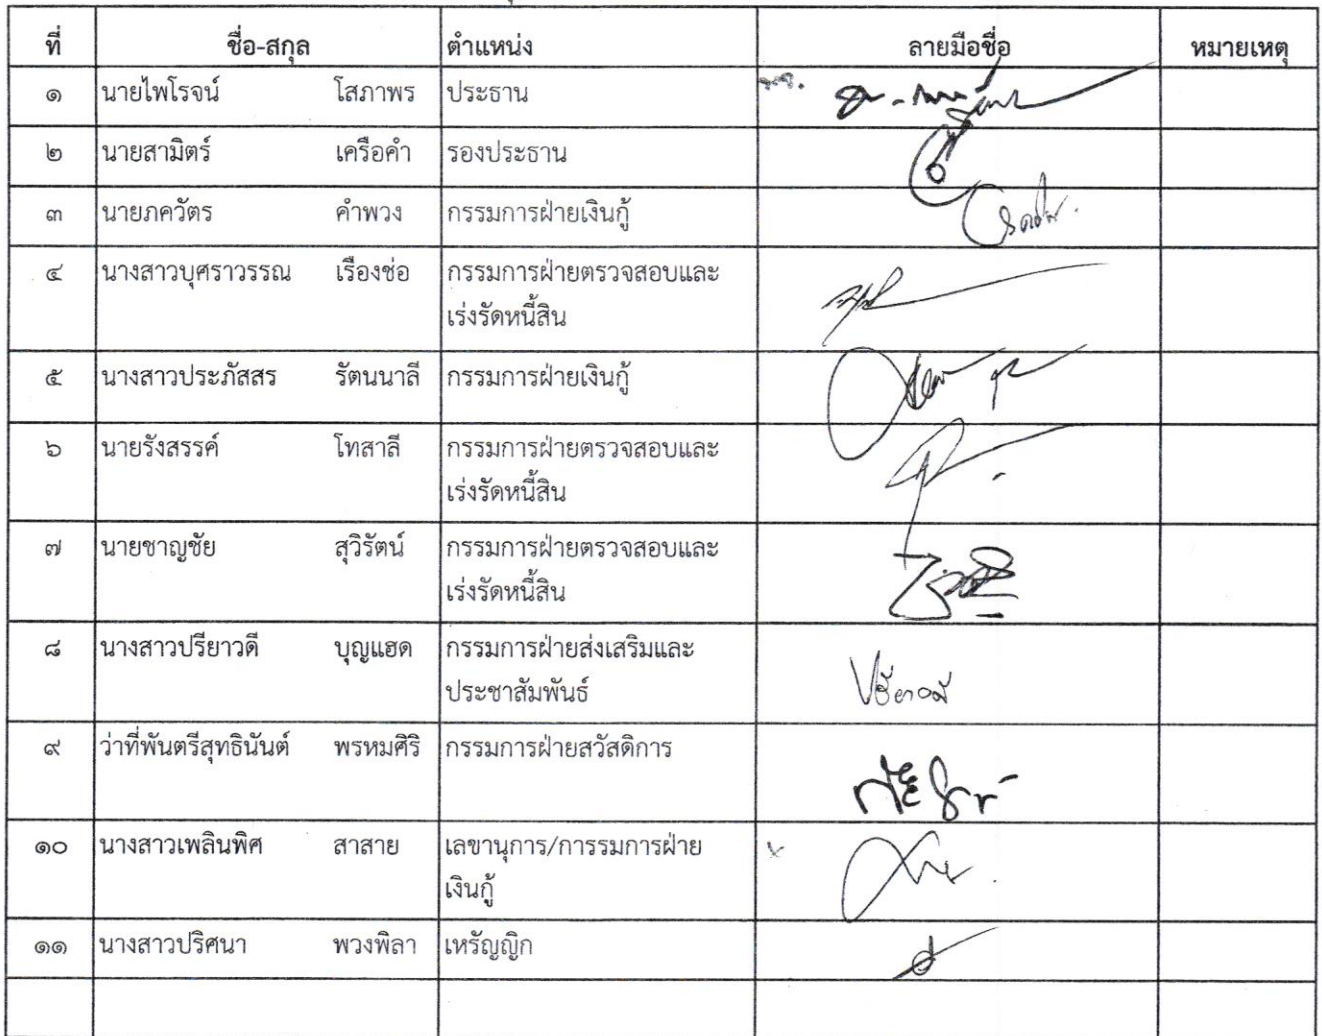 ที่ ชื่อ-สกุล ตำแหน่ง ลายมือชื่อ หมายเหตุ
๑ นายไพโรจน์ โสภาพร ประธาน
๒ นายสามิตร์ เครือคำ รองประธาน
๓ นายภควัตร คำพวง กรรมการฝ่ายเงินกู้
๔ นางสาวบุศราวรรณ เรืองช่อ กรรมการฝ่ายตรวจสอบและ
เร่งรัดหนี้สิน
๕ นางสาวประภัสสร รัตนนาลี กรรมการฝ่ายเงินกู้
๖ นายรังสรรค์ โทสาลี กรรมการฝ่ายตรวจสอบและ
เร่งรัดหนี้สิน
๗ นายชาญชัย สุวิรัตน์ กรรมการฝ่ายตรวจสอบและ
เร่งรัดหนี้สิน
๘ นางสาวปรียาวดี บุญแฮด กรรมการฝ่ายส่งเสริมและ
ประชาสัมพันธ์
ปรียาวดี
๙ ว่าที่พันตรีสุทธินันต์ พรหมศิริ กรรมการฝ่ายสวัสดิการ
๑๐ นางสาวเพลินพิศ สาสาย เลขานุการ/การรมการฝ่าย
เงินกู้
๑๑ นางสาวปริศนา พวงพิลา เหรัญญิก